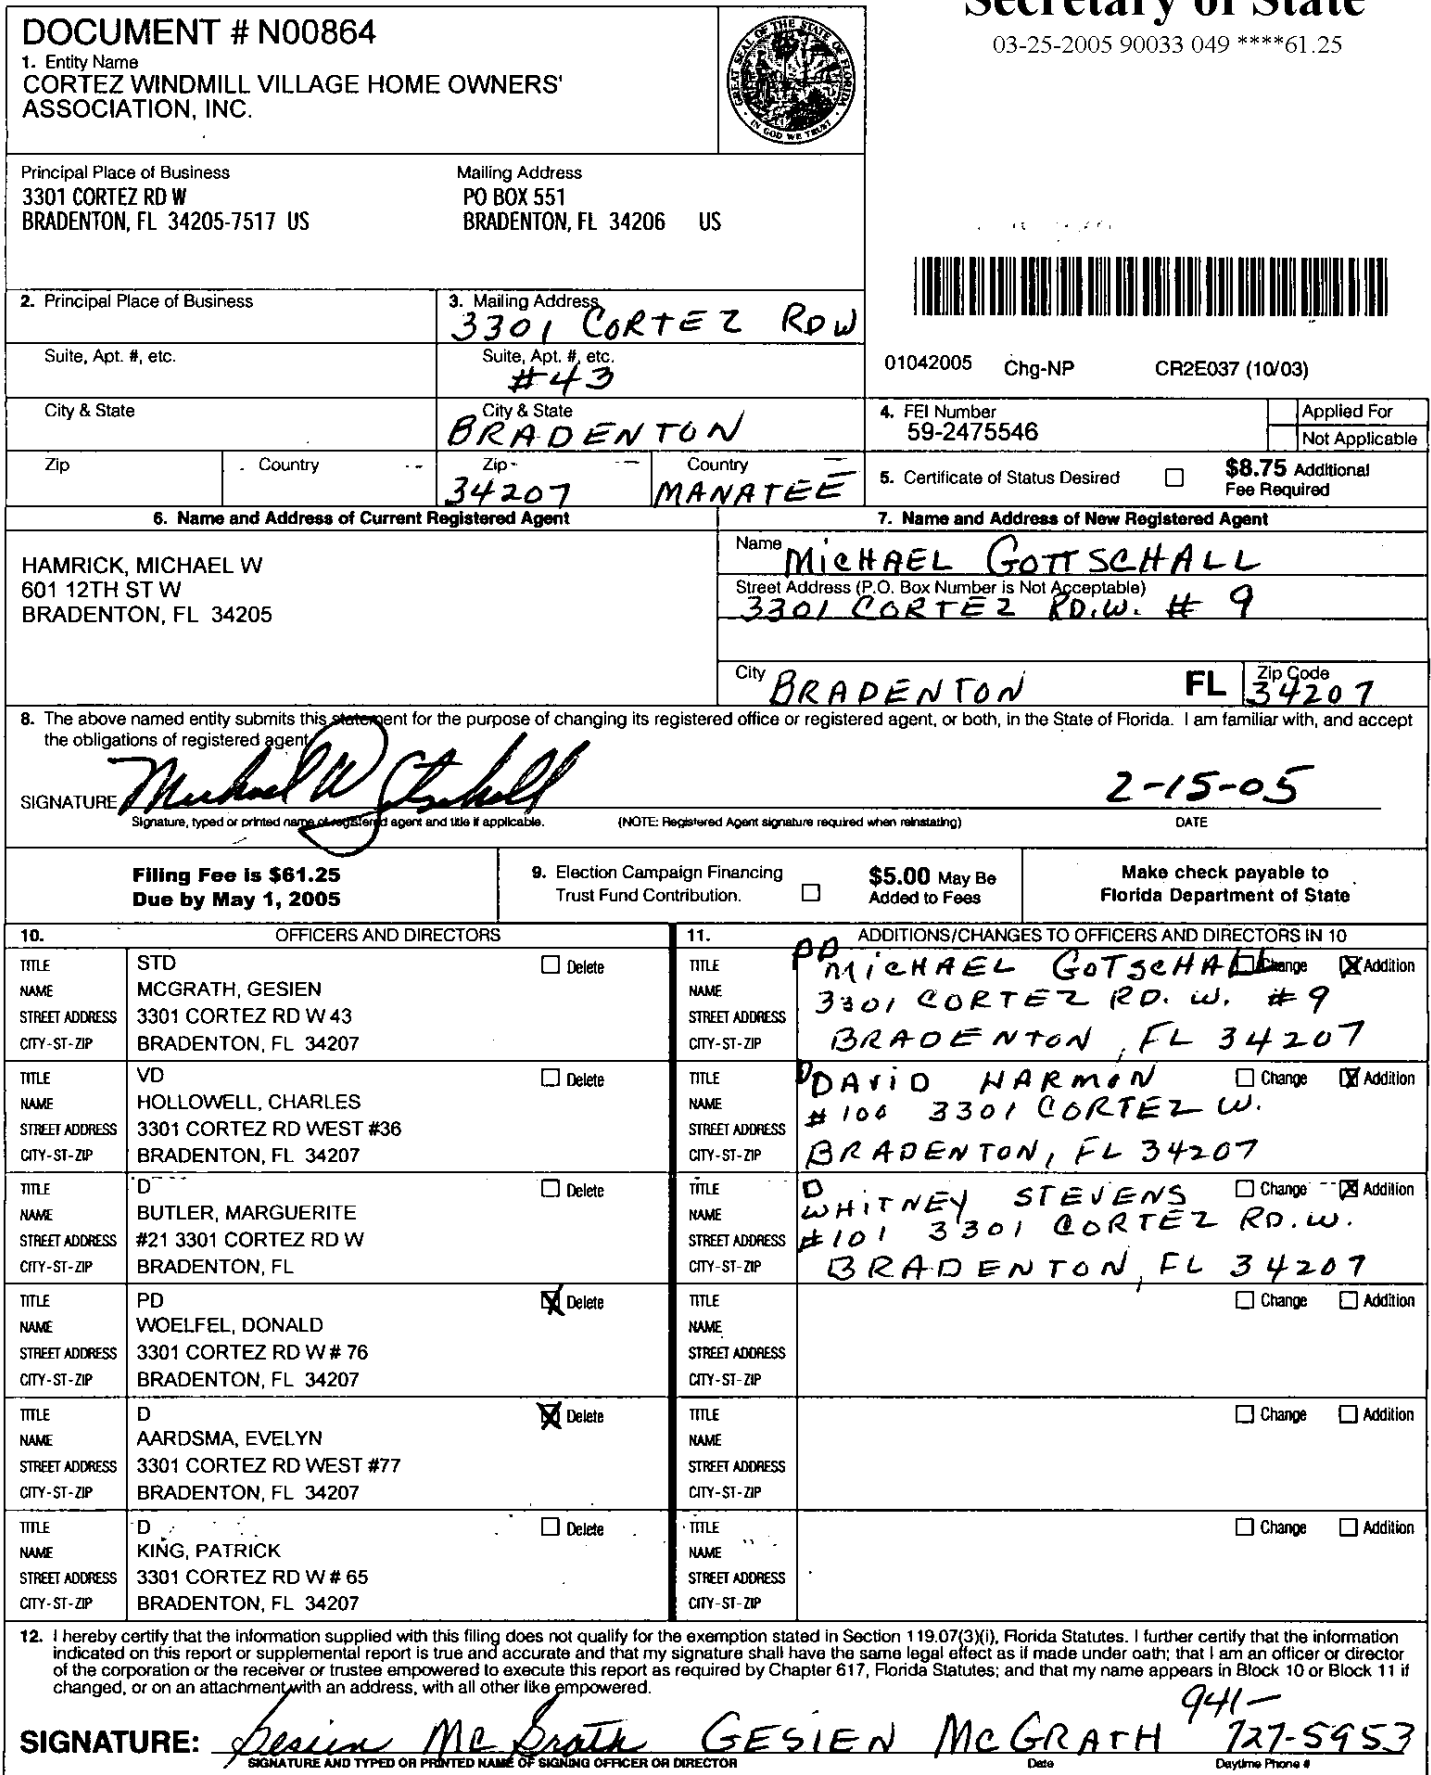 Secretary of State
03-25-2005 90033 049 ****61.25
DOCUMENT # N00864
1. Entity Name
CORTEZ WINDMILL VILLAGE HOME OWNERS'
ASSOCIATION, INC.
GREAT SEAL OF THE STATE OF FLORIDA
IN GOD WE TRUST
Principal Place of Business
3301 CORTEZ RD W
BRADENTON, FL 34205-7517 US
Mailing Address
PO BOX 551
BRADENTON, FL 34206 US
2. Principal Place of Business
3. Mailing Address
3301 CORTEZ RDW
Suite, Apt. #, etc.
Suite, Apt. #, etc.
#43
City & State
City & State
BRADENTON
Zip
Country
Zip
34207
Country
MANATEE
01042005 Chg-NP CR2E037 (10/03)
4. FEI Number
59-2475546
Applied For
Not Applicable
5. Certificate of Status Desired
$8.75 Additional
Fee Required
6. Name and Address of Current Registered Agent
HAMRICK, MICHAEL W
601 12TH ST W
BRADENTON, FL 34205
7. Name and Address of New Registered Agent
Name MICHAEL GOTTSCHALL
Street Address (P.O. Box Number is Not Acceptable)
3301 CORTEZ RD.W. # 9
City BRADENTON FL Zip Code 34207
8. The above named entity submits this statement for the purpose of changing its registered office or registered agent, or both, in the State of Florida. I am familiar with, and accept
the obligations of registered agent.
SIGNATURE Michael W Gotschall 2-15-05
Signature, typed or printed name of registered agent and title if applicable. (NOTE: Registered Agent signature required when reinstating) DATE
Filing Fee is $61.25
Due by May 1, 2005
9. Election Campaign Financing
Trust Fund Contribution.
$5.00 May Be
Added to Fees
Make check payable to
Florida Department of State
10. OFFICERS AND DIRECTORS
TITLE STD Delete
NAME MCGRATH, GESIEN
STREET ADDRESS 3301 CORTEZ RD W 43
CITY-ST-ZIP BRADENTON, FL 34207
TITLE VD Delete
NAME HOLLOWELL, CHARLES
STREET ADDRESS 3301 CORTEZ RD WEST #36
CITY-ST-ZIP BRADENTON, FL 34207
TITLE D Delete
NAME BUTLER, MARGUERITE
STREET ADDRESS #21 3301 CORTEZ RD W
CITY-ST-ZIP BRADENTON, FL
TITLE PD Delete
NAME WOELFEL, DONALD
STREET ADDRESS 3301 CORTEZ RD W # 76
CITY-ST-ZIP BRADENTON, FL 34207
TITLE D Delete
NAME AARDSMA, EVELYN
STREET ADDRESS 3301 CORTEZ RD WEST #77
CITY-ST-ZIP BRADENTON, FL 34207
TITLE D Delete
NAME KING, PATRICK
STREET ADDRESS 3301 CORTEZ RD W # 65
CITY-ST-ZIP BRADENTON, FL 34207
11. ADDITIONS/CHANGES TO OFFICERS AND DIRECTORS IN 10
TITLE PD MICHAEL GOTSCHALL Change Addition
NAME
STREET ADDRESS 3301 CORTEZ RD. W. #9
CITY-ST-ZIP BRADENTON, FL 34207
TITLE D DAVID HARMON Change Addition
NAME
STREET ADDRESS #100 3301 CORTEZ W.
CITY-ST-ZIP BRADENTON, FL 34207
TITLE D Change Addition
NAME WHITNEY STEVENS
STREET ADDRESS #101 3301 CORTEZ RD.W.
CITY-ST-ZIP BRADENTON, FL 34207
TITLE Change Addition
NAME
STREET ADDRESS
CITY-ST-ZIP
TITLE Change Addition
NAME
STREET ADDRESS
CITY-ST-ZIP
TITLE Change Addition
NAME
STREET ADDRESS
CITY-ST-ZIP
12. I hereby certify that the information supplied with this filing does not qualify for the exemption stated in Section 119.07(3)(i), Florida Statutes. I further certify that the information
indicated on this report or supplemental report is true and accurate and that my signature shall have the same legal effect as if made under oath; that I am an officer or director
of the corporation or the receiver or trustee empowered to execute this report as required by Chapter 617, Florida Statutes; and that my name appears in Block 10 or Block 11 if
changed, or on an attachment with an address, with all other like empowered.
SIGNATURE: Gesien McGrath GESIEN McGRATH 941-
727-5953
SIGNATURE AND TYPED OR PRINTED NAME OF SIGNING OFFICER OR DIRECTOR Date Daytime Phone #